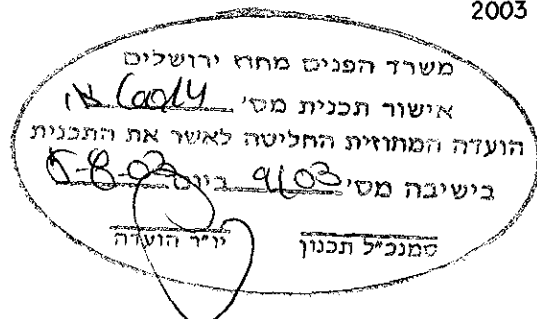 2003
משרד הפנים מחוז ירושלים
אישור תכנית מס'
הועדה המחוזית החליטה לאשר את התכנית
בישיבה מס' 9/03 ביום 5-8-03
סמנכ"ל תכנון יו"ר הועדה